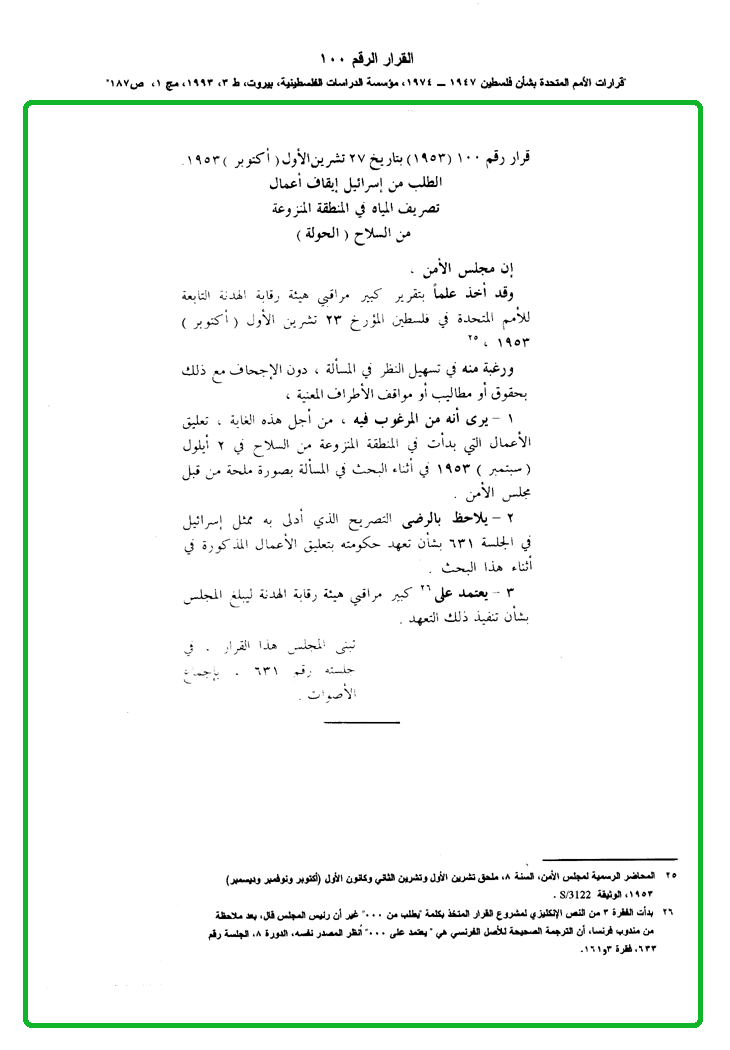 القرار الرقم ١٠٠
"قرارات الأمم المتحدة بشأن فلسطين ١٩٤٧ ــ ١٩٧٤، مؤسسة الدراسات الفلسطينية، بيروت، ط ٣، ١٩٩٣، مج ١، ص١٨٧"
قرار رقم ١٠٠ (١٩٥٣) بتاريخ ٢٧ تشرين الأول ( أكتوبر ) ١٩٥٣.
الطلب من إسرائيل إيقاف أعمال
تصريف المياه في المنطقة المنزوعة
من السلاح ( الحولة )
إن مجلس الأمن ،
وقد أخذ علماً بتقرير كبير مراقبي هيئة رقابة الهدنة التابعة
للأمم المتحدة في فلسطين المؤرخ ٢٣ تشرين الأول ( أكتوبر )
١٩٥٣ ، ٢٥
ورغبة منه في تسهيل النظر في المسألة ، دون الإجحاف مع ذلك
بحقوق أو مطاليب أو مواقف الأطراف المعنية ،
١ – يرى أنه من المرغوب فيه ، من أجل هذه الغاية ، تعليق
الأعمال التي بدأت في المنطقة المنزوعة من السلاح في ٢ أيلول
( سبتمبر ) ١٩٥٣ في أثناء البحث في المسألة بصورة ملحة من قبل
مجلس الأمن .
٢ – يلاحظ بالرضى التصريح الذي أدلى به ممثل إسرائيل
في الجلسة ٦٣١ بشأن تعهد حكومته بتعليق الأعمال المذكورة في
أثناء هذا البحث .
٣ – يعتمد على ٢٦ كبير مراقبي هيئة رقابة الهدنة ليبلغ المجلس
بشأن تنفيذ ذلك التعهد .
تبنى المجلس هذا القرار . في
جلسته رقم ٦٣١ . بإجماع
الأصوات .
٢٥ المحاضر الرسمية لمجلس الأمن، السنة ٨، ملحق تشرين الأول وتشرين الثاني وكانون الأول (أكتوبر ونوفمبر وديسمبر)
١٩٥٣، الوثيقة S/3122 .
٢٦ بدأت الفقرة ٣ من النص الإنكليزي لمشروع القرار المتخذ بكلمة "يطلب من ٠٠٠" غير أن رئيس المجلس قال، بعد ملاحظة
من مندوب فرنسا، أن الترجمة الصحيحة للأصل الفرنسي هي " يعتمد على ٠٠٠" أنظر المصدر نفسه، الدورة ٨، الجلسة رقم
٦٣٣، فقرة ٣و١٦١.